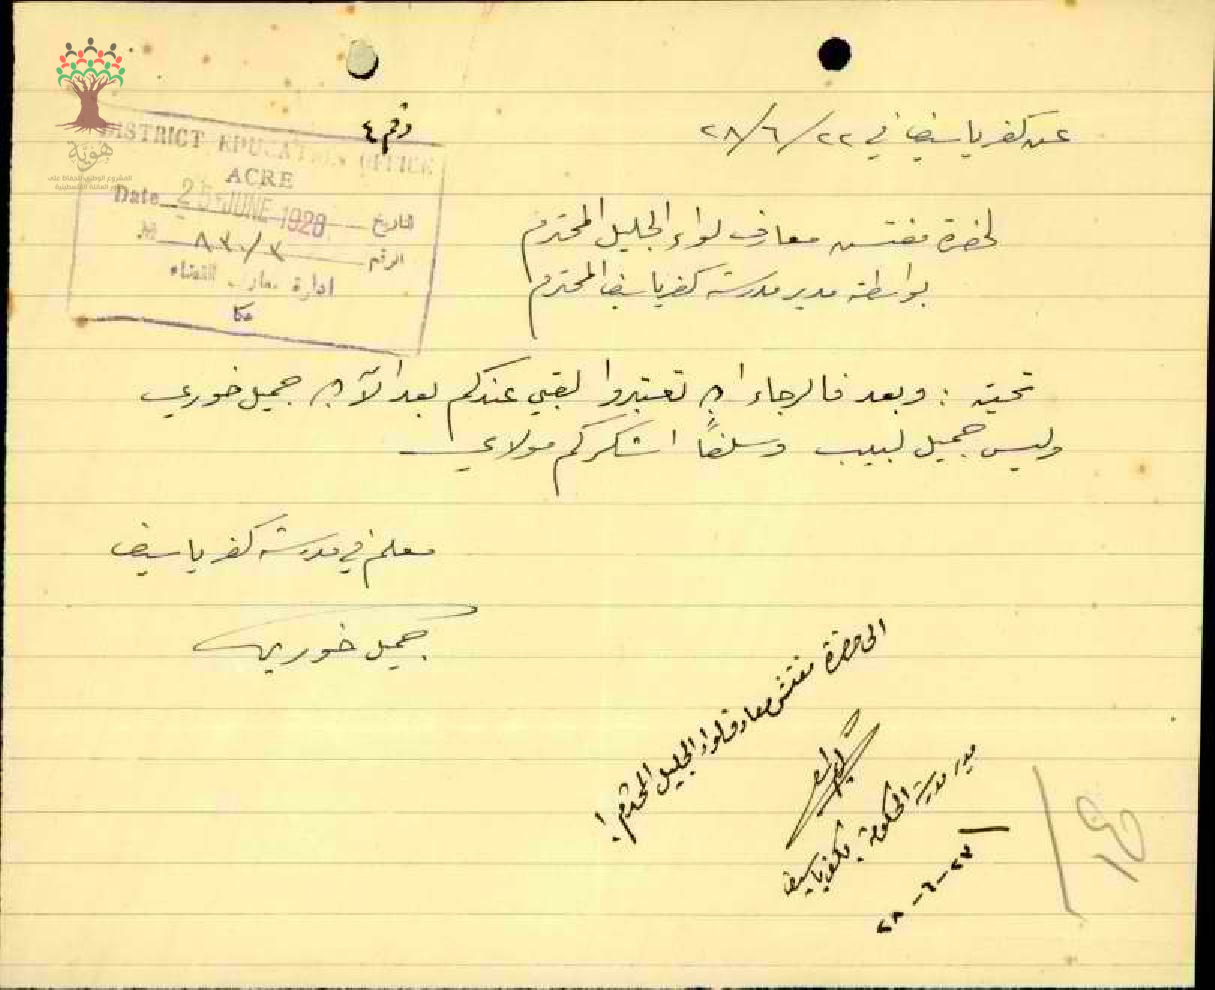 عن كفرياسيف في ٢٢/٦/٢٨
رقم ٤
DISTRICT EDUCATION OFFICE
ACRE
Date 25 JUNE 1928 التاريخ
№ ٨٣٠/٣ الرقم
ادارة معارف القضاء
عكا
هوية
لحضرة مفتش معارف لواء الجليل المحترم
بواسطة مدير مدرسة كفرياسيف المحترم
تحية : وبعد فالرجاء ان تعتبروا لقبي عندكم بعد الآن جميل خوري
وليس جميل لبيب وسلفاً اشكركم مولاي
معلم في مدرسة كفرياسيف
جميل خوري
الى حضرة مفتش معارف لواء الجليل المحترم !
مدير مدرسة الحكومة بكفرياسيف
٢٣-٦-٢٨